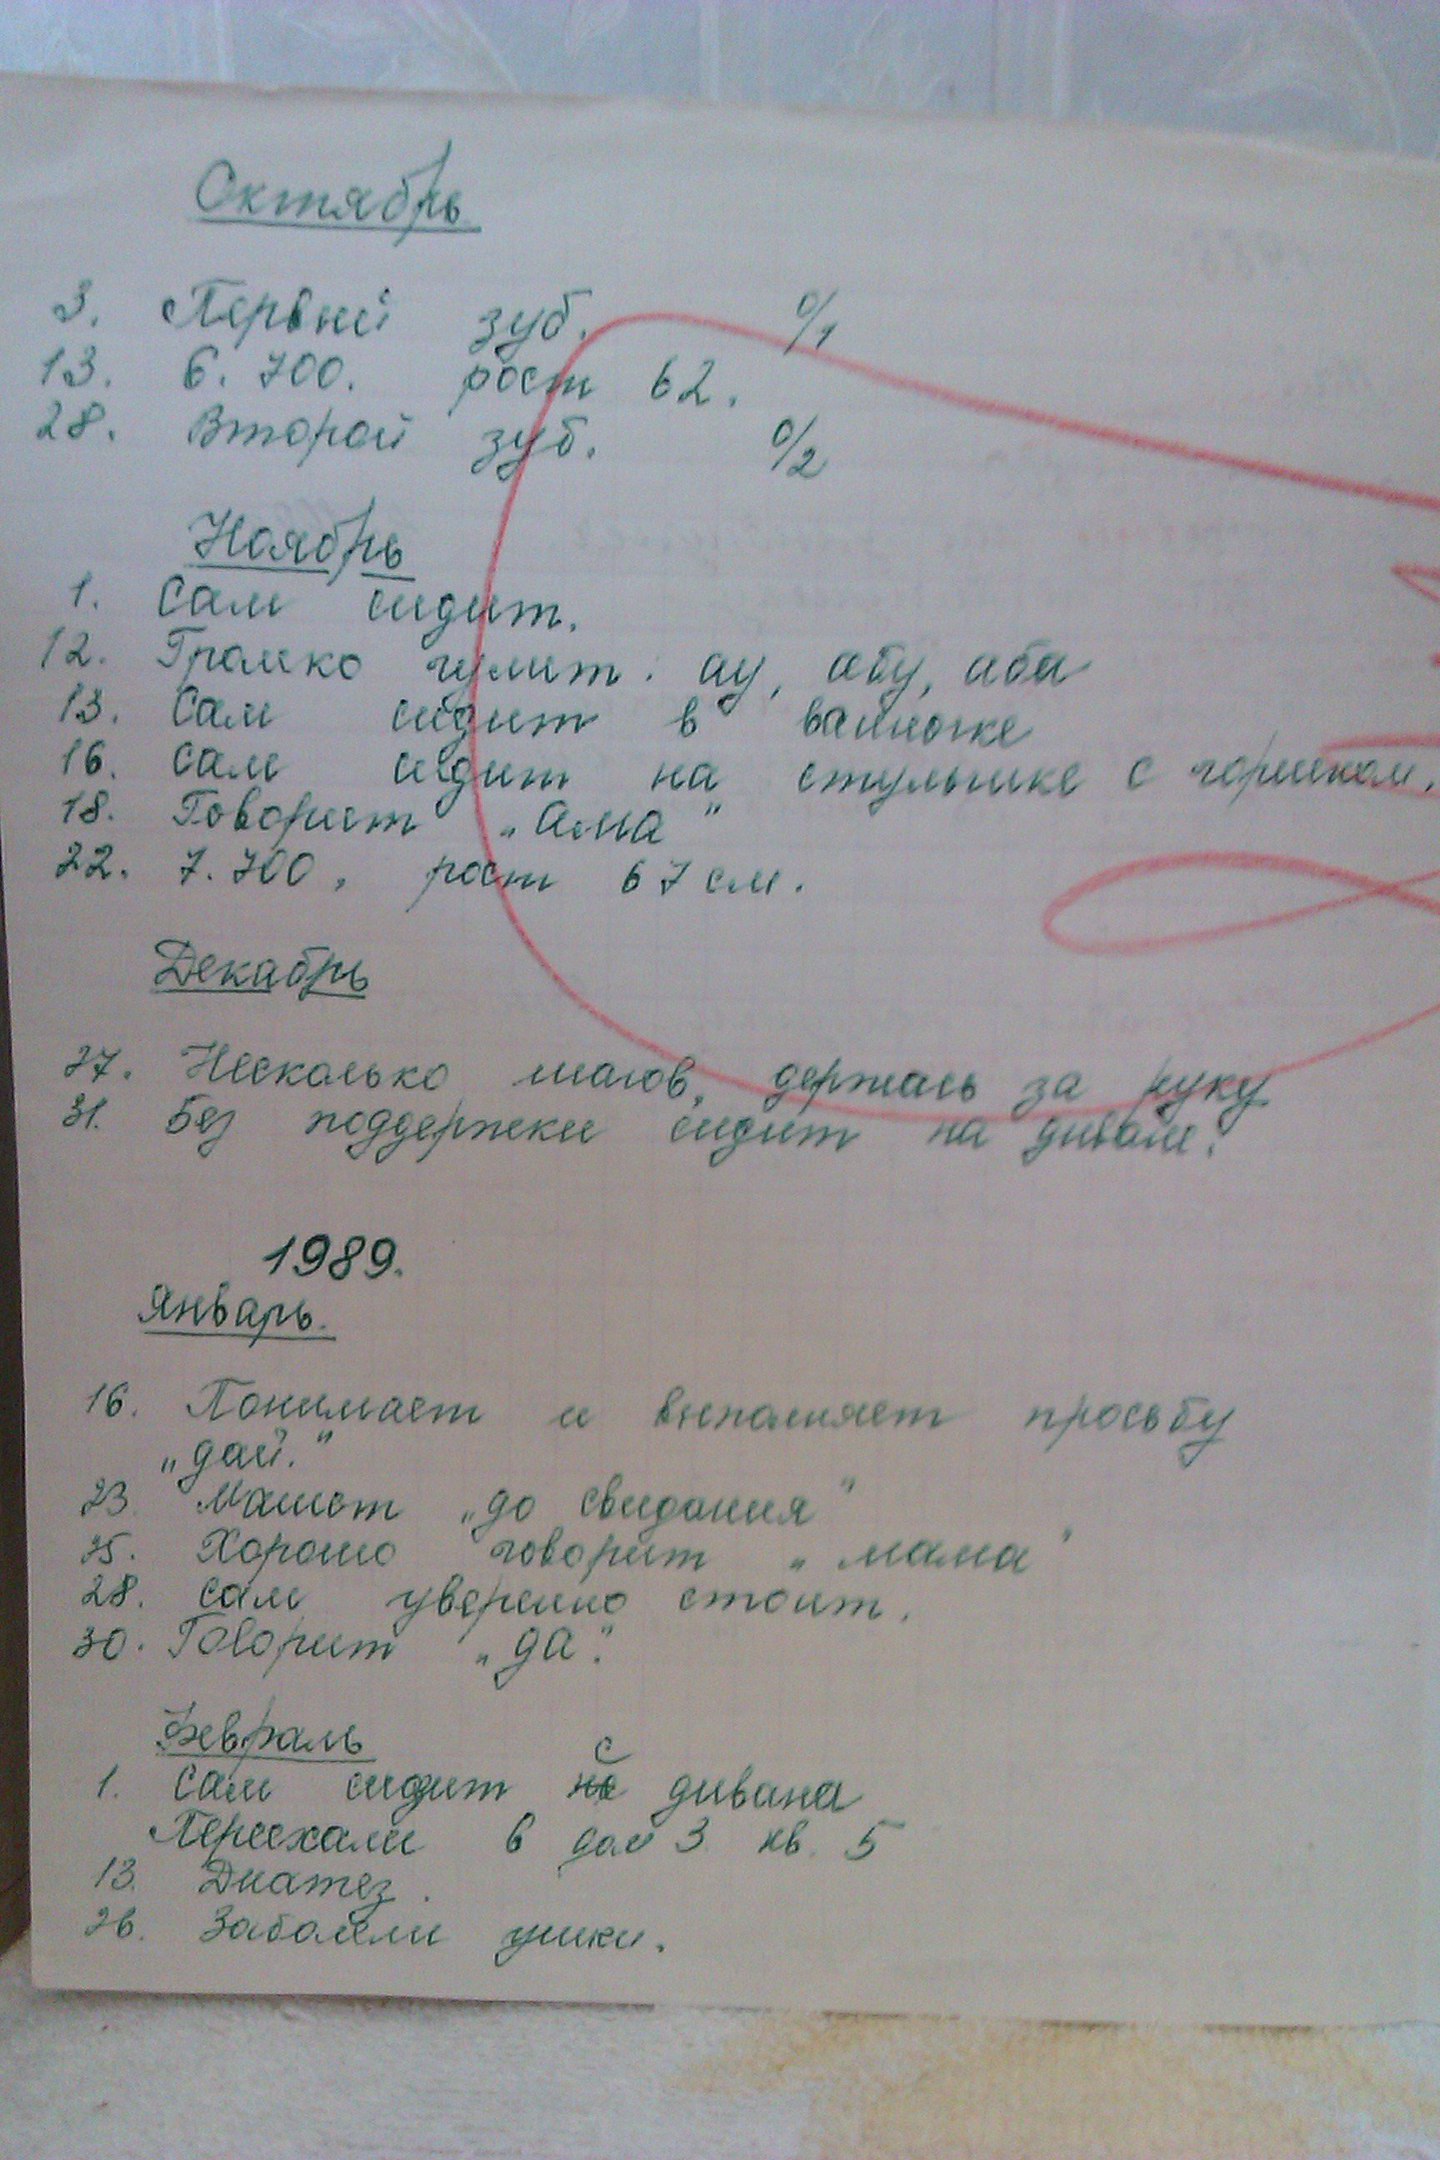 Октябрь
3. Первый зуб. 0/1
13. 6.700. рост 62.
28. Второй зуб. 0/2
Ноябрь
1. Сам сидит.
12. Громко гулит: ау, абу, аба
13. Сам сидит в ванночке
16. Сам сидит на стульчике с горшком.
18. Говорит „ама"
22. 7.700, рост 67 см.
Декабрь
27. Несколько шагов, держась за руку
31. Без поддержки сидит на диване.
1989.
Январь.
16. Понимает и выполняет просьбу
„дай."
23. Машет „до свидания"
25. Хорошо говорит „мама"
28. Сам уверенно стоит.
30. Говорит „да".
Февраль
1. Сам сидит с дивана
Переехали в дом 3 кв. 5
13. Диатез.
26. Заболели ушки.